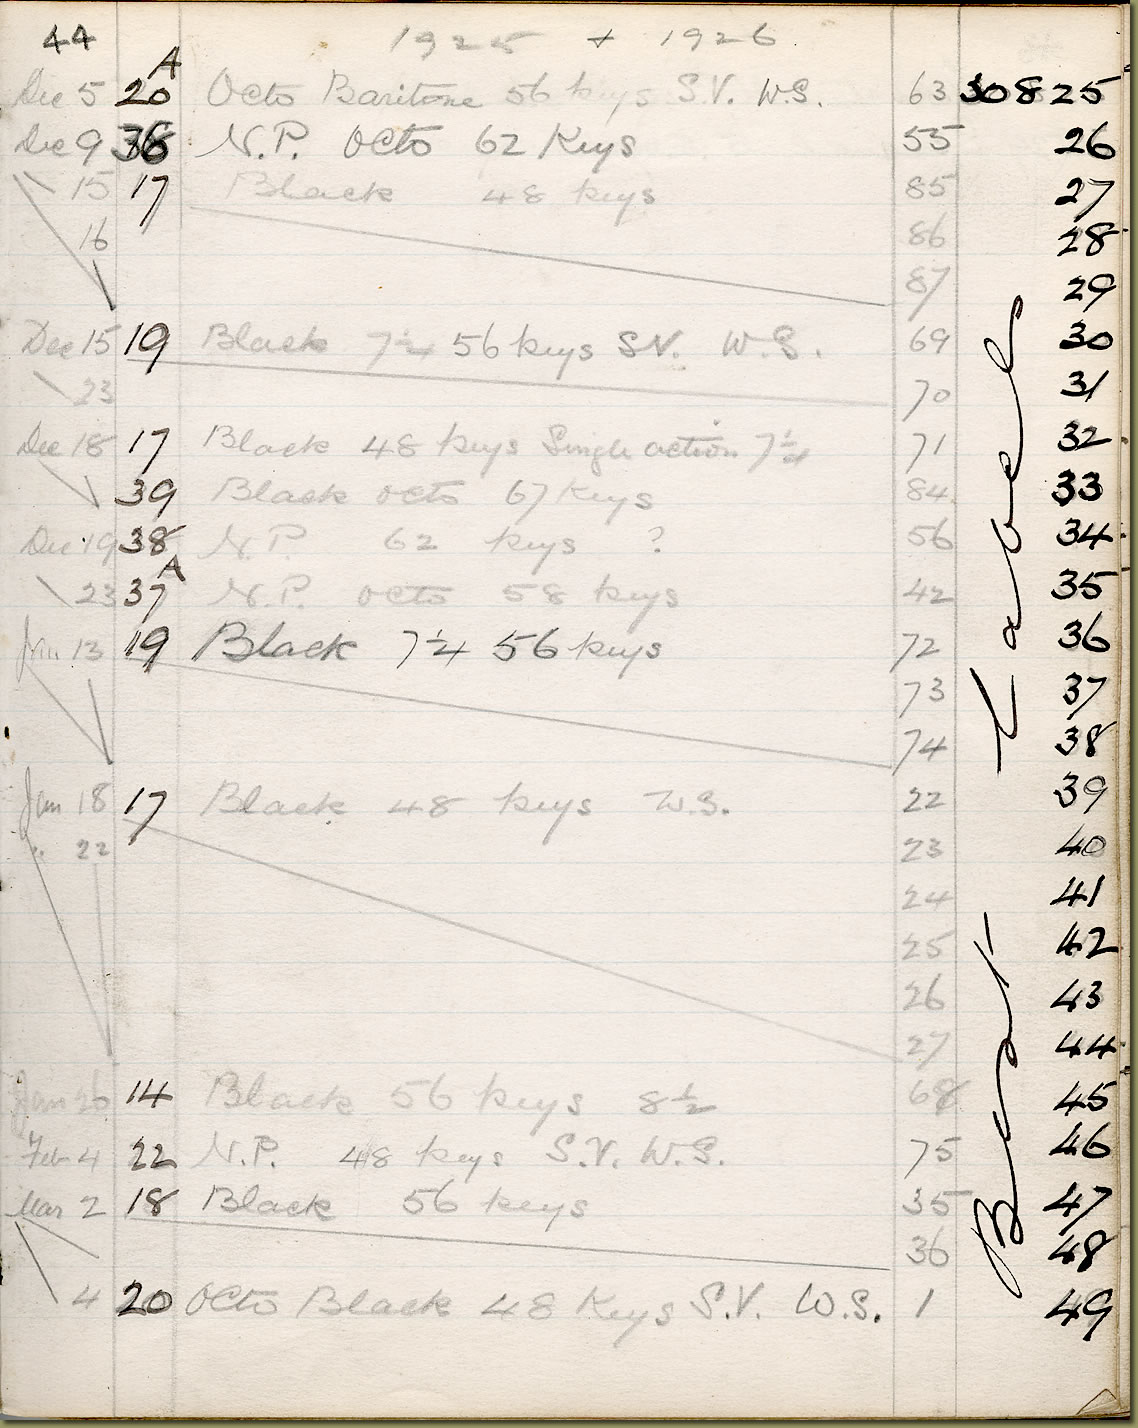 44 1925 + 1926
Dec 5 20A Octo Baritone 56 keys S.V. W.S. 63 30825
Dec 9 38 N.P. Octo 62 Keys 55 26
15 17 Black 48 keys 85 27
16 86 28
87 29
Dec 15 19 Black 7¼ 56 keys S.V. W.S. 69 30
23 70 31
Dec 18 17 Black 48 keys Single action 7¼ 71 32
39 Black Octo 67 Keys 84 33
Dec 19 38 N.P. 62 keys ? 56 34
23 37A N.P. Octo 58 keys 42 35
Jan 13 19 Black 7¼ 56 keys 72 36
73 37
74 38
Jan 18 17 Black 48 keys W.S. 22 39
" 22 23 40
24 41
25 42
26 43
27 44
Jan 26 14 Black 56 keys 8½ 68 45
Feb 4 22 N.P. 48 keys S.V. W.S. 75 46
Mar 2 18 Black 56 keys 35 47
36 48
4 20 Octo Black 48 Keys S.V. W.S. 1 49
Best Label